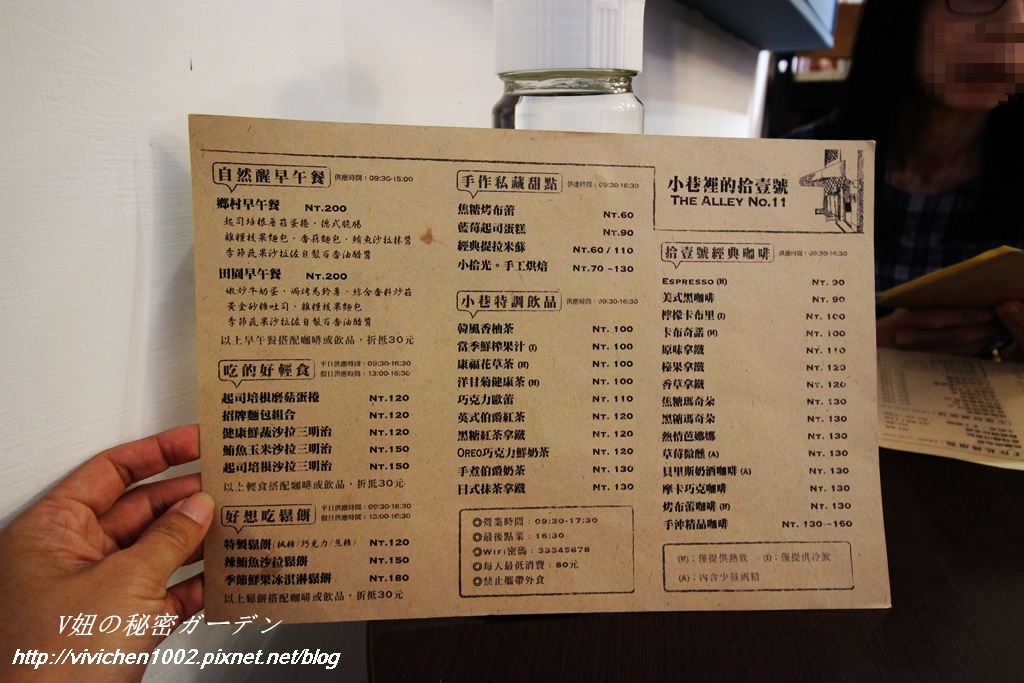 自然醒早午餐 供應時間：09:30-15:00
鄉村早午餐 NT.200
起司培根蘑菇蛋捲．德式脆腸
雜糧核果麵包．香蒜麵包．鮪魚沙拉抹醬
季節蔬果沙拉佐自製百香油醋醬
田園早午餐 NT.200
嫩炒牛奶蛋．焗烤馬鈴薯．綜合香料炒菇
黃金砂糖吐司．雜糧核果麵包
季節蔬果沙拉佐自製百香油醋醬
以上早午餐搭配咖啡或飲品，折抵30元
吃的好輕食 平日供應時間：09:30-16:30
假日供應時間：13:00-16:30
起司培根磨菇蛋捲 NT.120
招牌麵包組合 NT.120
健康鮮蔬沙拉三明治 NT.120
鮪魚玉米沙拉三明治 NT.150
起司培根沙拉三明治 NT.150
以上輕食搭配咖啡或飲品，折抵30元
好想吃鬆餅 平日供應時間：09:30-16:30
假日供應時間：13:00-16:30
特製鬆餅(楓糖/巧克力/焦糖) NT.120
辣鮪魚沙拉鬆餅 NT.150
季節鮮果冰淇淋鬆餅 NT.180
以上鬆餅搭配咖啡或飲品，折抵30元
手作私藏甜點 供應時間：09:30-16:30
焦糖烤布蕾 NT.60
藍莓起司蛋糕 NT.90
經典提拉米蘇 NT.60 / 110
小拾光。手工烘焙 NT.70 ~130
小巷特調飲品 供應時間：09:30-16:30
韓風香柚茶 NT. 100
當季鮮榨果汁 (I) NT. 100
康福花草茶 (H) NT. 100
洋甘菊健康茶 (H) NT. 100
巧克力歐蕾 NT. 110
英式伯爵紅茶 NT. 120
黑糖紅茶拿鐵 NT. 120
OREO巧克力鮮奶茶 NT. 120
手煮伯爵奶茶 NT. 130
日式抹茶拿鐵 NT. 130
◎營業時間：09:30-17:30
◎最後點菜：16:30
◎WIFI密碼：33345678
◎每人最低消費：80元
◎禁止攜帶外食
小巷裡的拾壹號
THE ALLEY NO.11
拾壹號經典咖啡 供應時間：09:30-16:30
ESPRESSO (H) NT. 90
美式黑咖啡 NT. 90
檸檬卡布里 (I) NT. 100
卡布奇諾 (H) NT. 100
原味拿鐵 NT. 110
榛果拿鐵 NT. 120
香草拿鐵 NT. 120
焦糖瑪奇朵 NT. 130
黑糖瑪奇朵 NT. 130
熱情芭娜娜 NT. 130
草莓微醺 (A) NT. 130
貝里斯奶酒咖啡 (A) NT. 130
摩卡巧克咖啡 NT. 130
烤布蕾咖啡 (H) NT. 130
手沖精品咖啡 NT. 130 ~160
(H)：僅提供熱飲 (I)：僅提供冷飲
(A)：內含少量酒精
V妞の秘密ガーデン
http://vivichen1002.pixnet.net/blog